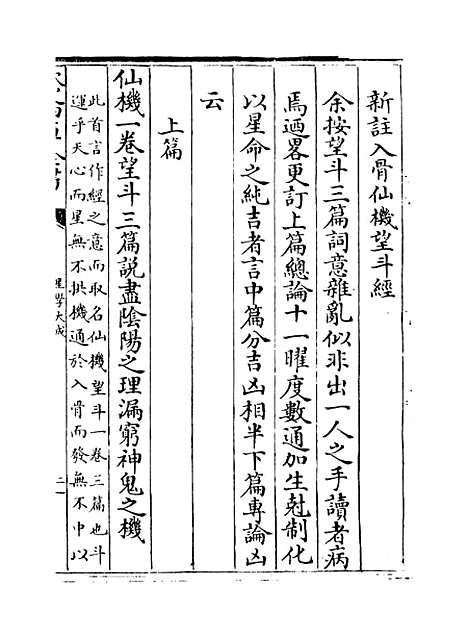 新註入骨仙機望斗經
余按望斗三篇詞意雜亂似非出一人之手讀者病
焉迺畧更訂上篇總論十一曜度數通加生尅制化
以星命之純吉者言中篇分吉凶相半下篇專論凶
云
上篇
仙機一卷望斗三篇說盡陰陽之理漏窮神鬼之機
此首言作經之意而取名仙機望斗一卷三篇也斗
運乎天心而星無不拱機通於入骨而發無不中以
星學大成
二